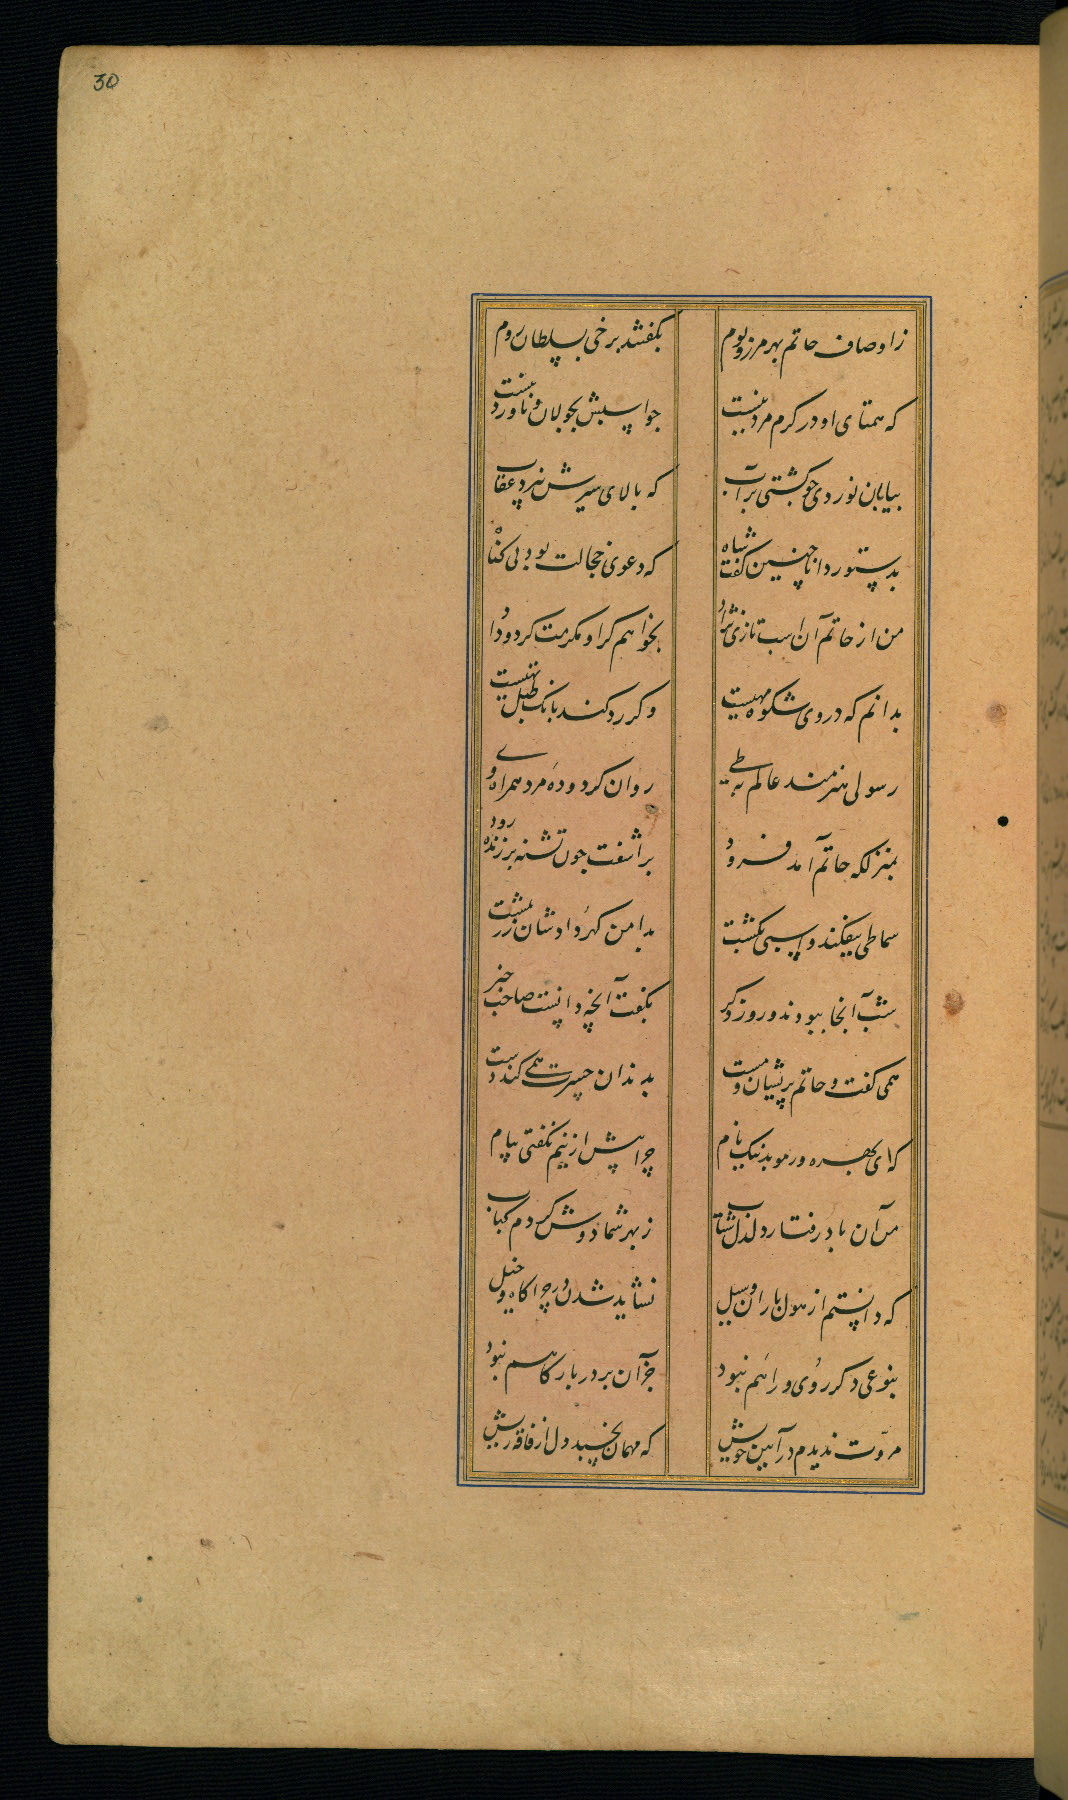 30
ز اوصاف حاتم بهر مرز و بوم بگفتند برخی بسلطان روم
که همتای او در کرم مرد نیست جو اسبش بجولان و ناورد نیست
بیابان نوردی جو کشتی بر آب که بالای سیرش نپرد عقاب
بدستور دانا چنین گفت شاه که دعوی خجالت بود بی کناه
من از حاتم آن اسب تازی نژاد بخواهم کر او مکرمت کرد و داد
بدانم که در وی شکوه مهیست و کر رد کند بانک طبل تهیست
رسولی هنرمند عالم به طی روان کرد و ده مرد همراه وی
بمنزلکه حاتم آمد فرود براشفت جون تشنه بر زنده رود
سماطی بیفکند و اسبی بکشت بدامن کهر دادشان زر بمشت
شب آنجا ببودند و روز دکر بکفت آنچه دانست صاحب خبر
همی کفت و حاتم پریشان و مست بدندان حسرت همی کند دست
که ای بهره ور موبد نیک نام چرا پیش ازینم نکفتی پیام
من آن باد رفتار دلدل شتاب ز بهر شما دوش کردم کباب
که دانستم از هول باران و سیل نشاید شدن در چراکاه خیل
بنوعی دکر روی و راهم نبود جز آن بر در بارکاهم نبود
مروّت ندیدم در آیین خویش که مهمان بخسبد دل از فاقه ریش